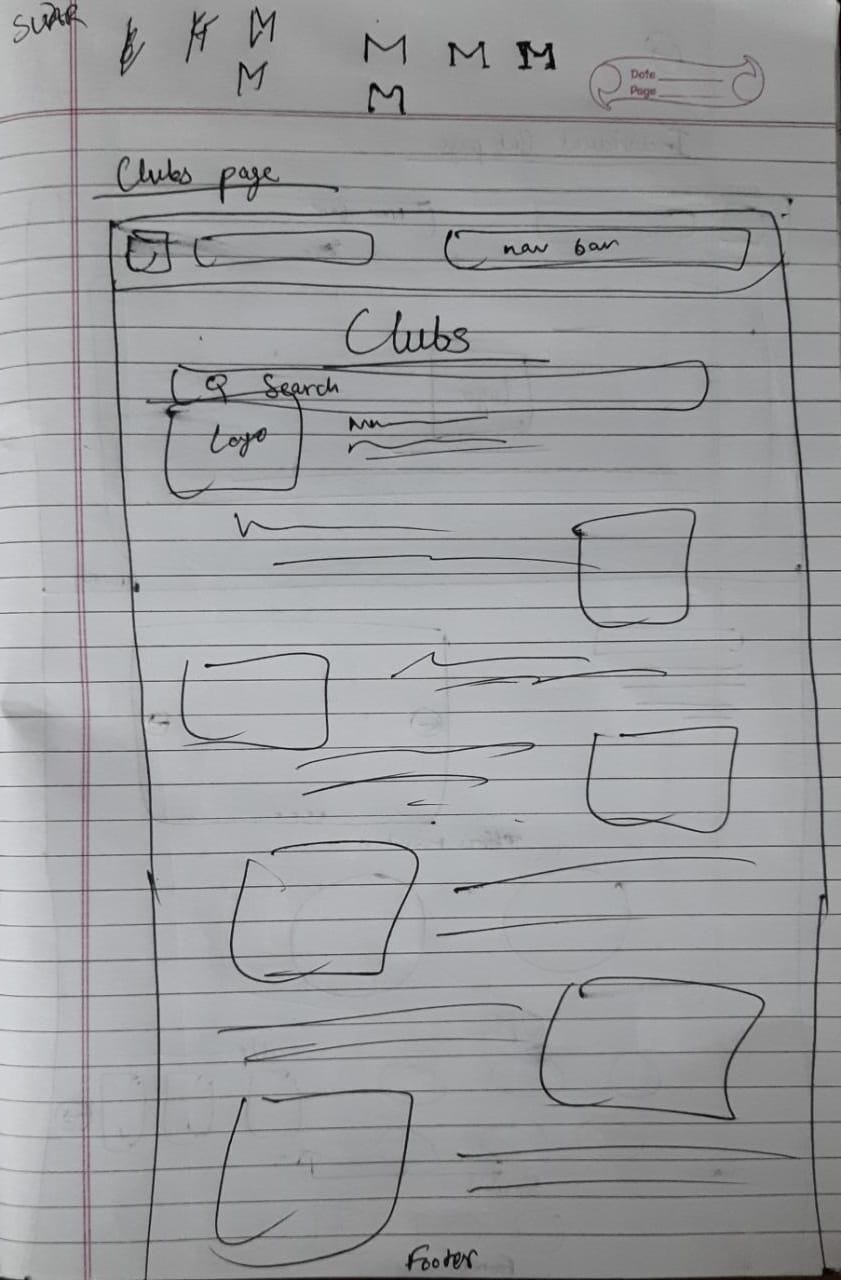 SUPER
M
M M M
M
M
Date
Page
Clubs page
nav bar
Clubs
Search
Logo
Footer